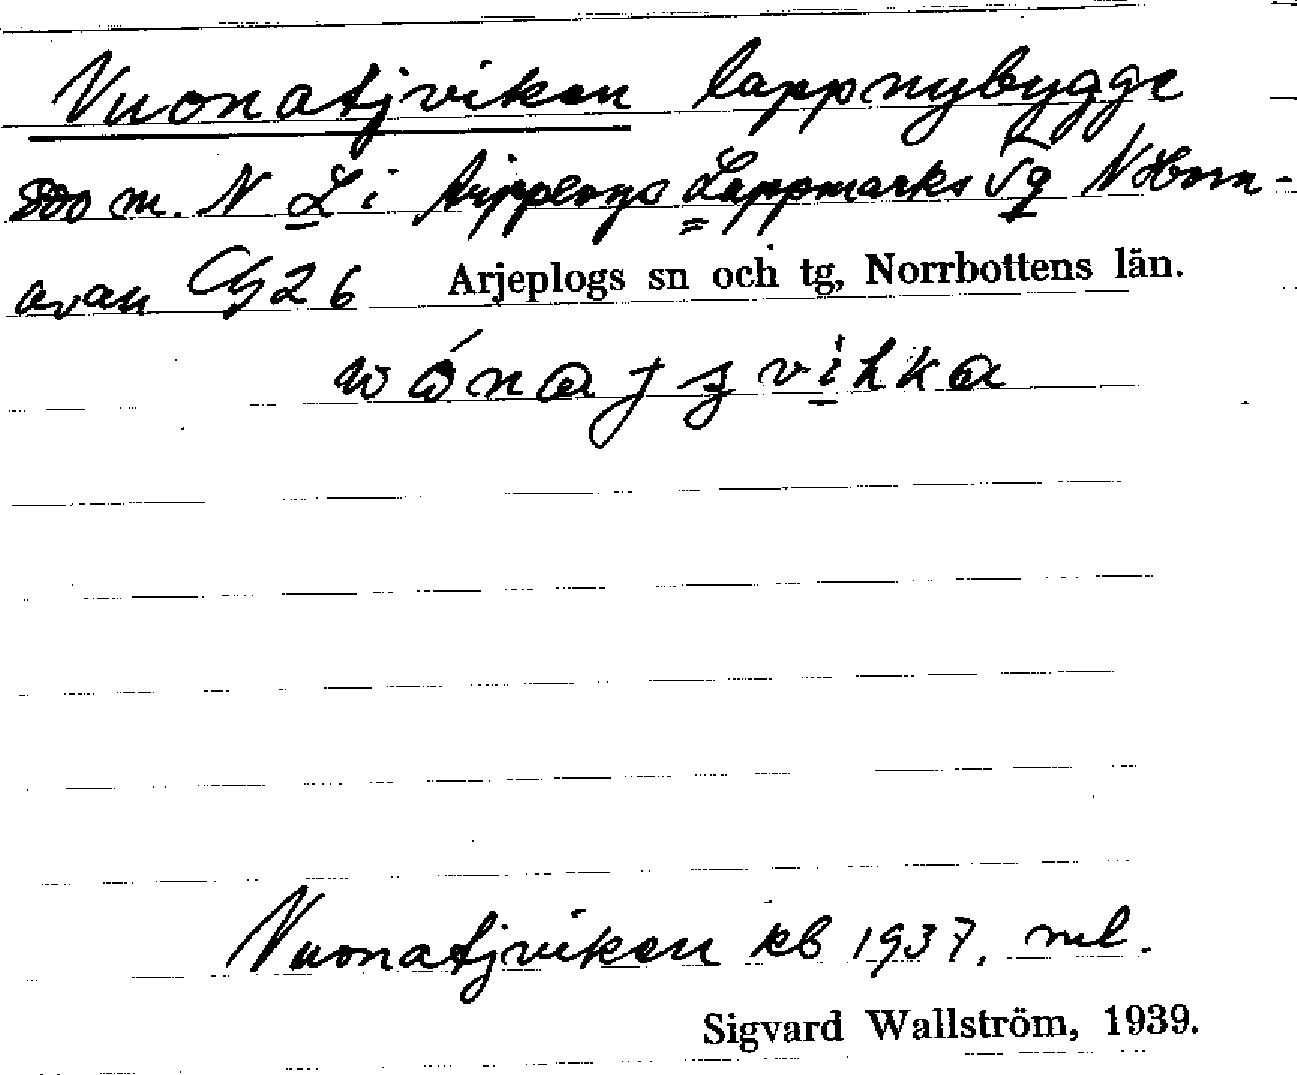 Vuonatjviken lappnybygge
800 m. N L i Arjeplogs Lappmarks Tg N Horn-
avan 26
Arjeplogs sn och tg, Norrbottens län.
Vuonatjviken kb 1937.
Sigvard Wallström, 1939.